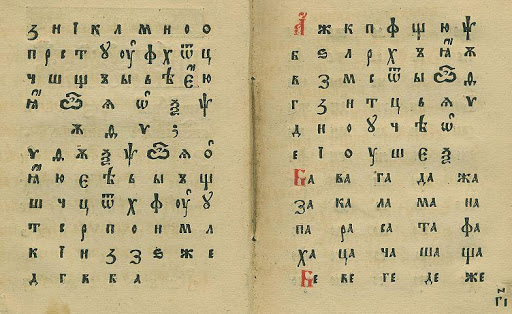 ꙁ и і к л м н о ѻ
п р с т ꙋ ѹ ф х ѿ ц
ч ш щ ъ ы ь ѣ є ю
ꙗ ѽ ѧ ѡ ѯ ѱ
ѫ ѳ ѵ :
ѵ ѳ ѫ ѯ ѱ ѽ ѧ ѡ
ꙗ ю є ѣ ь ы ъ щ
ш ч ц ѿ х ф ѹ ꙋ
т с р п о н м л
к і и ꙁ з ѕ ж е
д г в б а
А ж к п ф щ ю ѱ
б ѕ л р х ъ ꙗ ѫ
в з м с ѿ ы ѽ ѳ
г ꙁ н т ц ь ѧ ѵ
д и о ꙋ ч ѣ ѡ
е і ѻ ѹ ш є ѯ
Ба ва га да жа
за ка ла ма на
па ра са та фа
ха ца ча ша ща
Бе ве ге де же
г҃і